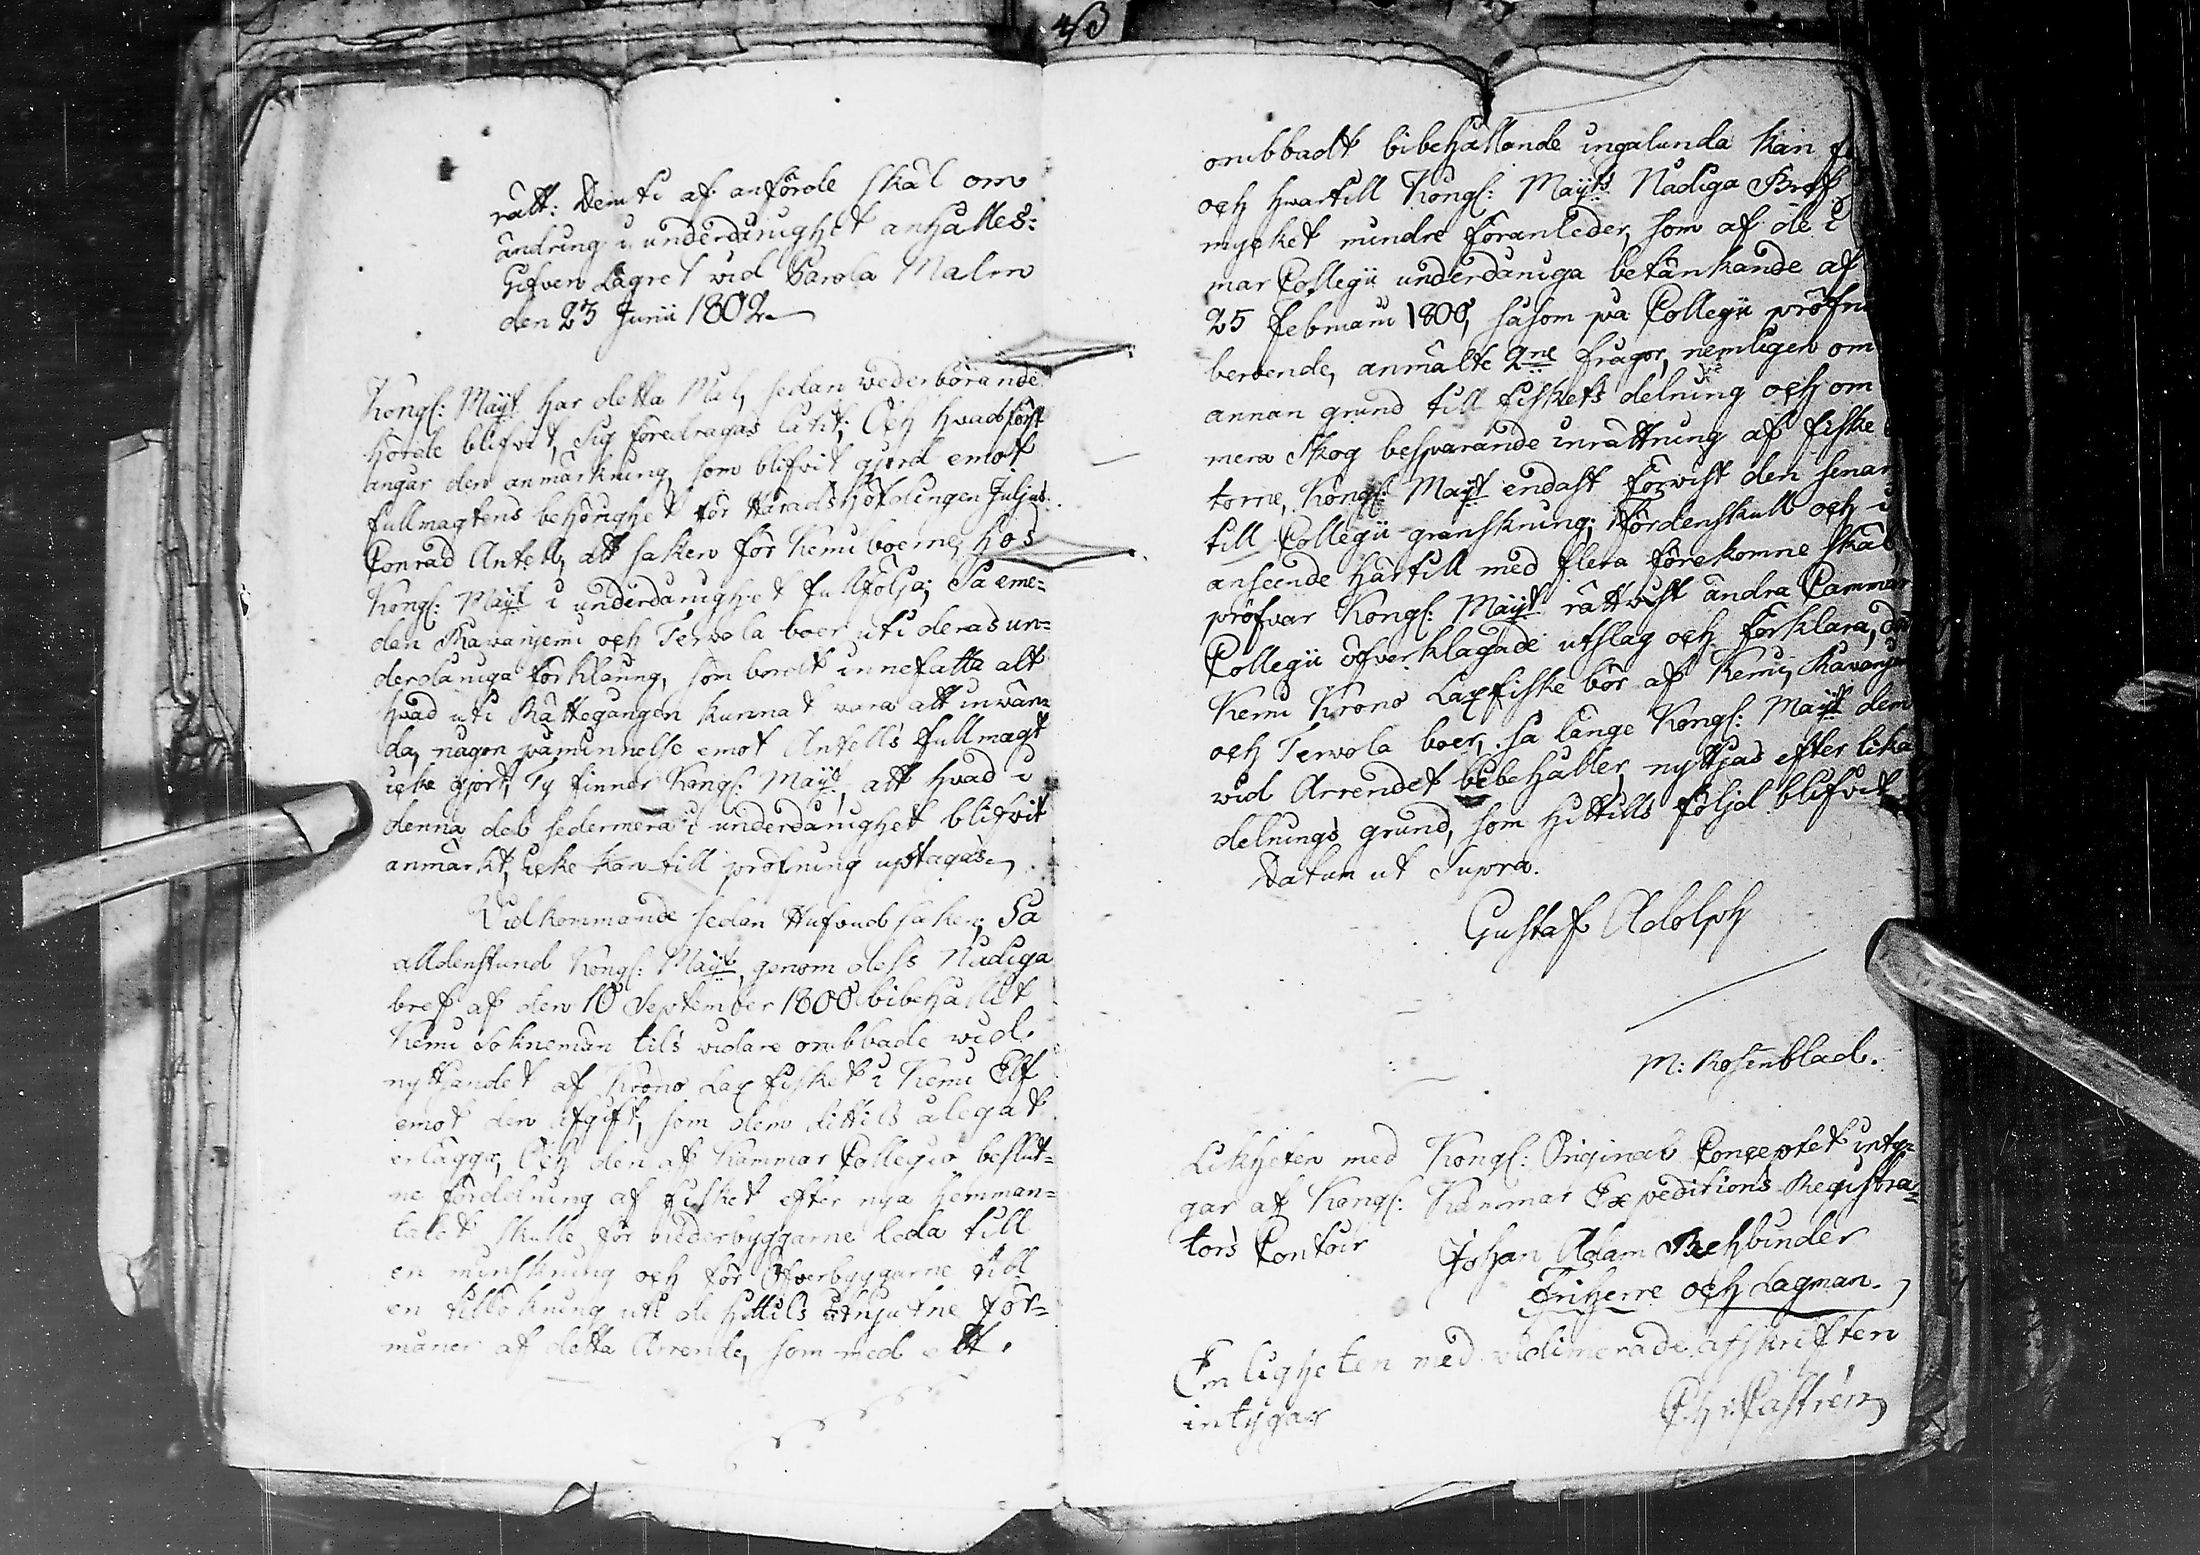 43
rätt: Demti af anförde skäl om
ändring i underdånighet anhålles:
Gifven Lägret vid Parola Malm
den 23 Junii 1802
Kongl: Maijt har detta Mål, sedan vederbörande
hörde blifvit, Sig föredragas låtit; Och hvad först
angår den anmärkning, som blifvit gjord emot
fullmagtens behörighet för Häradshöfdingen Juljus
Conrad Antell, att saken för Kemi boerne, hos
Kongl: Maijt i underdånighet fullfölja; Så eme-
dan Ravanjemi och Tervola boer uti deras un-
derdåniga förklaring, som bordt innefatta alt
hvad uti Rättegången kunnat vara att invän-
da, någon påminnelse emot Antells fullmagt
icke gjort, Ty finner Kongl: Maijt, att hvad i
denna del sedermera i underdånighet blifvit
anmärkt, icke kan till pröfning uptagas.
Vidkommande sedan Hufvudsaken; Så
alldenstund Kongl: Maijt, genom dess Nådiga
bref af den 10 September 1800 bibehållit
Kemi Sokneman tils vidare orubbade vid
nyttjandet af Krono Laxfisket i Kemi Elf
emot den afgift, som dem hittils ålegat
erlägga, Och den af Kammar Collegio beslut-
ne fördelning af fisket efter nya hemman-
talet skulle för nederbyggarne leda till
en minskning och för Öfverbyggarne till
en tillökning uti de hittils åtnjutne för-
måner af detta Arrende, som med ett
orubbadt bibehållande ingalunda kan
och hvartill Kongl: Maijts Nådiga Bref
mycket mindre föranleder, som af de i
mar Collegii underdåniga betänkande af
25 Februarii 1800, såsom på Collegii pröfn
beroende, anmälte 2ne frågor, nemligen om
annan grund till fiskets delning och om
mera Skog besparande inrättning af fiske
torne, Kongl: Maijt endast förvist den senar
till Collegii granskning; fördenskull och i
anseende härtill med flera förekomne skäl
pröfvar Kongl: Maijt rättvist ändra Cammar
Collegii öfverklagade utslag och förklara,
Kemi Krono Laxfiske bör af Kemi, Ravanjemi
och Tervola boer, så länge Kongl: Maijt dem
vid Arrendet bibehåller, nyttjas efter lika
delnings grund, som hittills följd blifvit
Datum ut Supra.
Gustaf Adolph
M: Rosenblad.
Likheten med Kongl: Original Conceptet inty-
gar af Kongl: Kammar Expeditions Registra-
tors Contoir Johan Adam Rehbinder
Friherre och Lagman.
Enligheten med vidimerade afskriften
intygar Castrén